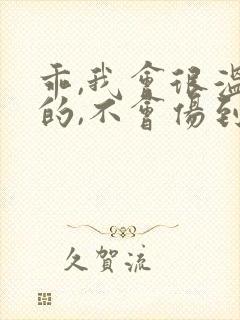 乖,我會很溫
的,不會傷到
久賀流